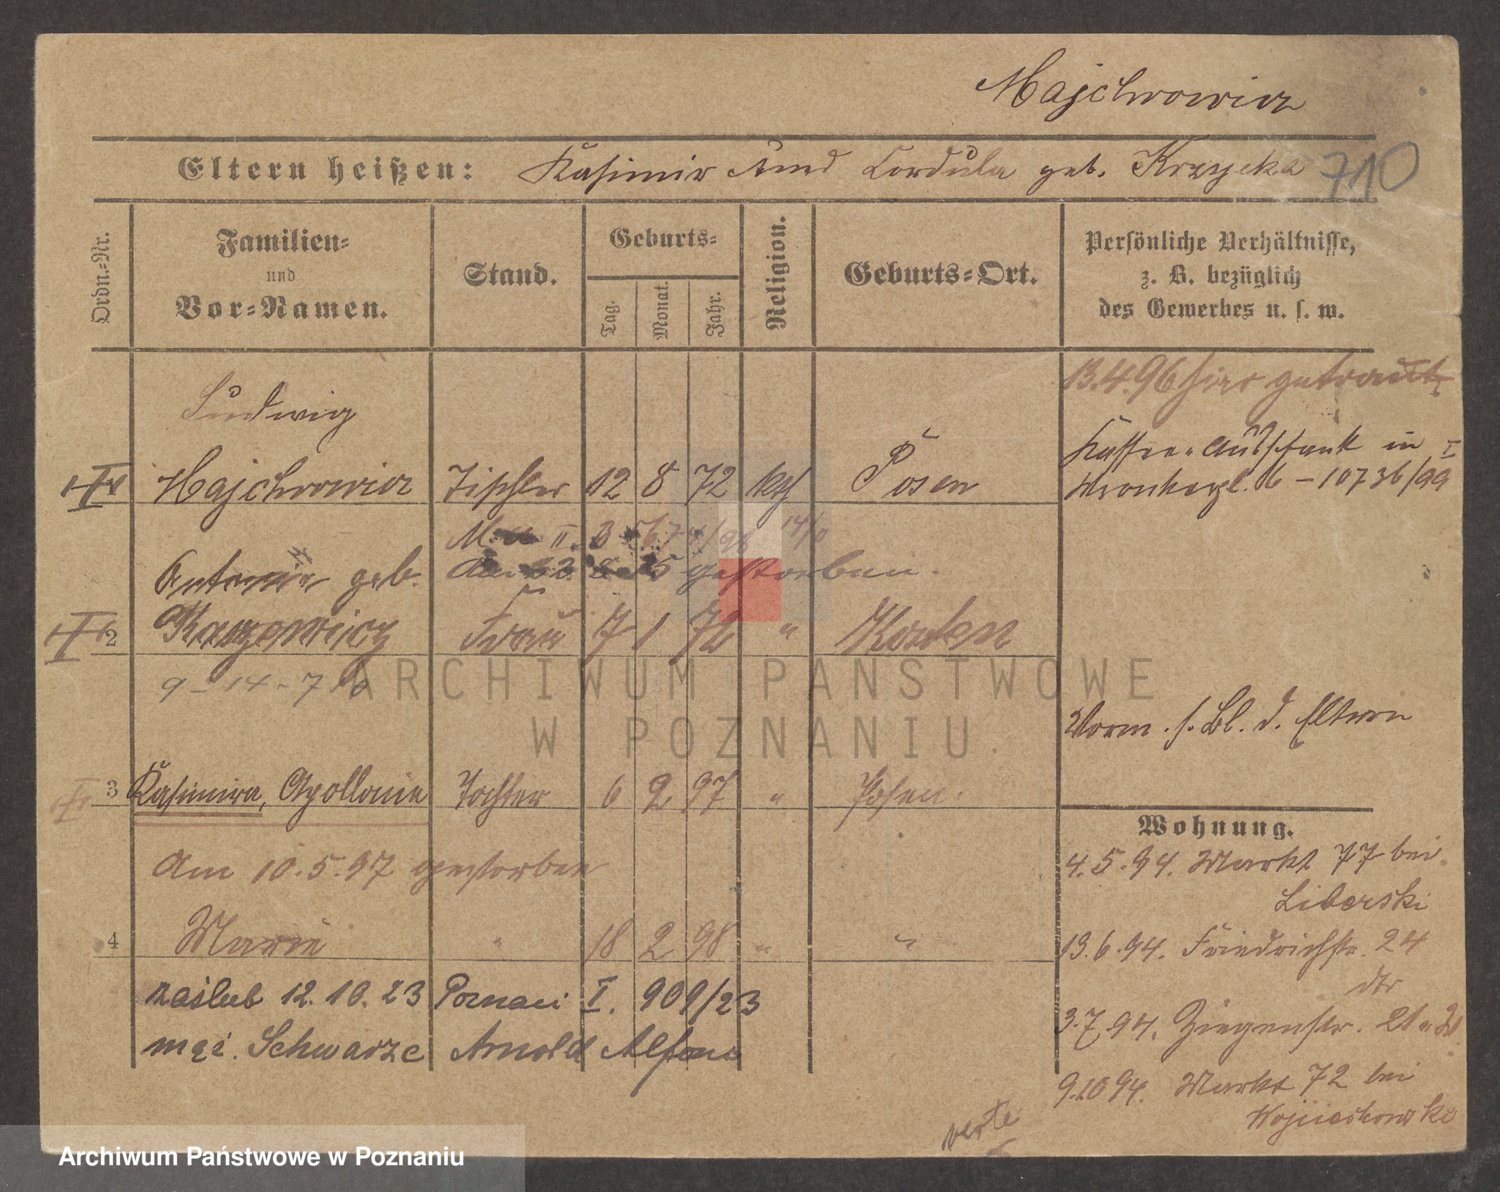 Majchrowicz
Eltern heißen: Kasimir und Cordula geb. Krzycka 710
Ordn.-Nr.
Familien-
und
Vor-Namen.
Stand.
Geburts-
Tag.
Monat.
Jahr.
Religion.
Geburts-Ort.
Persönliche Verhältnisse,
z. B. bezüglich
des Gewerbes u. s. w.
13.4.96 hier getraut
Ludwig
Majchrowicz Tischler 12 8 72 kth Posen
Kaffee-Ausschank in
6 – 10736/99
gestorben.
Antonie geb.
2 Frau 7 1 72 "
9 – 14 – 7
Vorm. s. Bl. d. Eltern
3 Kasimira, Apollonie Tochter 6 2 97 " Posen.
Am 10.5.97 gestorben
4 Marie " 18 2 98 " "
zaślub 12.10.23 Poznań I. 909/23
mąż. Schwarze Arnold Alfons
Wohnung.
4.5.94. Markt 77 bei
Liberski
13.6.94. Friedrichstr. 24
dto
3.7.94. Ziegenstr. 21
9.10.94. Markt 72 bei
Wojciechowski
verte
ARCHIWUM PAŃSTWOWE
W POZNANIU
Archiwum Państwowe w Poznaniu